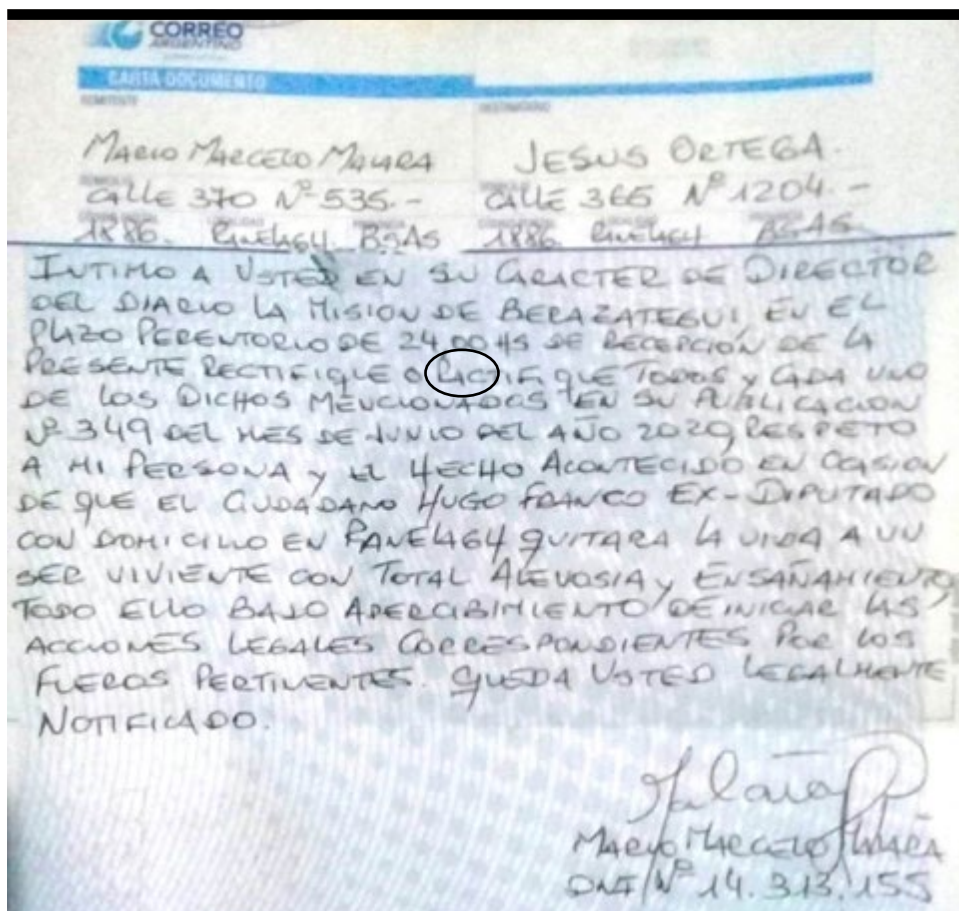 CORREO
ARGENTINO
CARTA DOCUMENTO
REMITENTE DESTINATARIO
MARIO MARCELO JESUS ORTEGA.
CALLE 370 Nº 535.- CALLE 365 Nº 1204.-
1886. BSAS 1886 BSAS
INTIMO A USTED EN SU CARACTER DE DIRECTOR
DEL DIARIO LA MISION DE BERAZATEGUI EN EL
PLAZO PERENTORIO DE 24,00 HS DE RECEPCIÓN DE LA
PRESENTE RECTIFIQUE O QUE TODOS Y CADA UNO
DE LOS DICHOS MENCIONADOS EN SU PUBLICACION
Nº 349 DEL MES DE JUNIO DEL AÑO 2020, RESPETO
A MI PERSONA Y EL HECHO ACONTECIDO EN OCASION
DE QUE EL CIUDADANO HUGO FRANCO EX-DIPUTADO
CON DOMICILIO EN QUITARA LA VIDA A UN
SER VIVIENTE CON TOTAL ALEVOSIA Y ENSAÑAMIENTO,
TODO ELLO BAJO APERCIBIMIENTO DE INICIAR LAS
ACCIONES LEGALES CORRESPONDIENTES POR LOS
FUEROS PERTINENTES. QUEDA USTED LEGALMENTE
NOTIFICADO.
MARIO MARCELO
DNI Nº 14.313.155